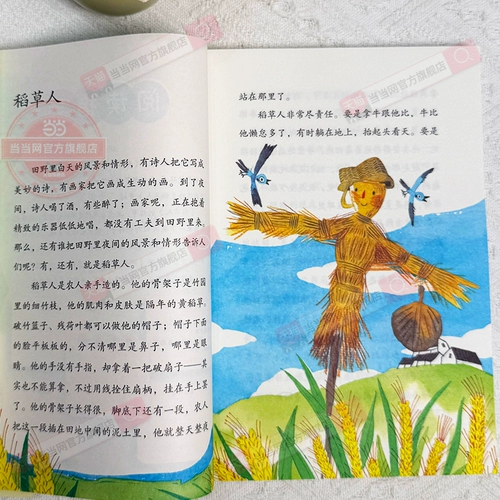 稻草人
田野里白天的风景和情形，有诗人把它写成
美妙的诗，有画家把它画成生动的画。到了夜
间，诗人喝了酒，有些醉了；画家呢，正在抱着
精致的乐器低低地唱，都没有工夫到田野里来。
那么，还有谁把田野里夜间的风景和情形告诉人
们呢？有，还有，就是稻草人。
稻草人是农人亲手造的。他的骨架子是竹园
里的细竹枝，他的肌肉和皮肤是隔年的黄稻草。
破竹篮子、残荷叶都可以做他的帽子；帽子下面
的脸平板板的，分不清哪里是鼻子，哪里是
眼睛。他的手没有手指，却拿着一把破扇子——其
实也不能算拿，不过用线拴住扇柄，挂在手上罢
了。他的骨架子长得很，脚底下还有一段，农人
把这一段插在田地中间的泥土里，他就整天整夜
站在那里了。
稻草人非常尽责任。要是拿牛跟他比，牛比
他懒怠多了，有时躺在地上，抬起头看天。要是
当当网官方旗舰店
天猫 当当网官方旗舰店